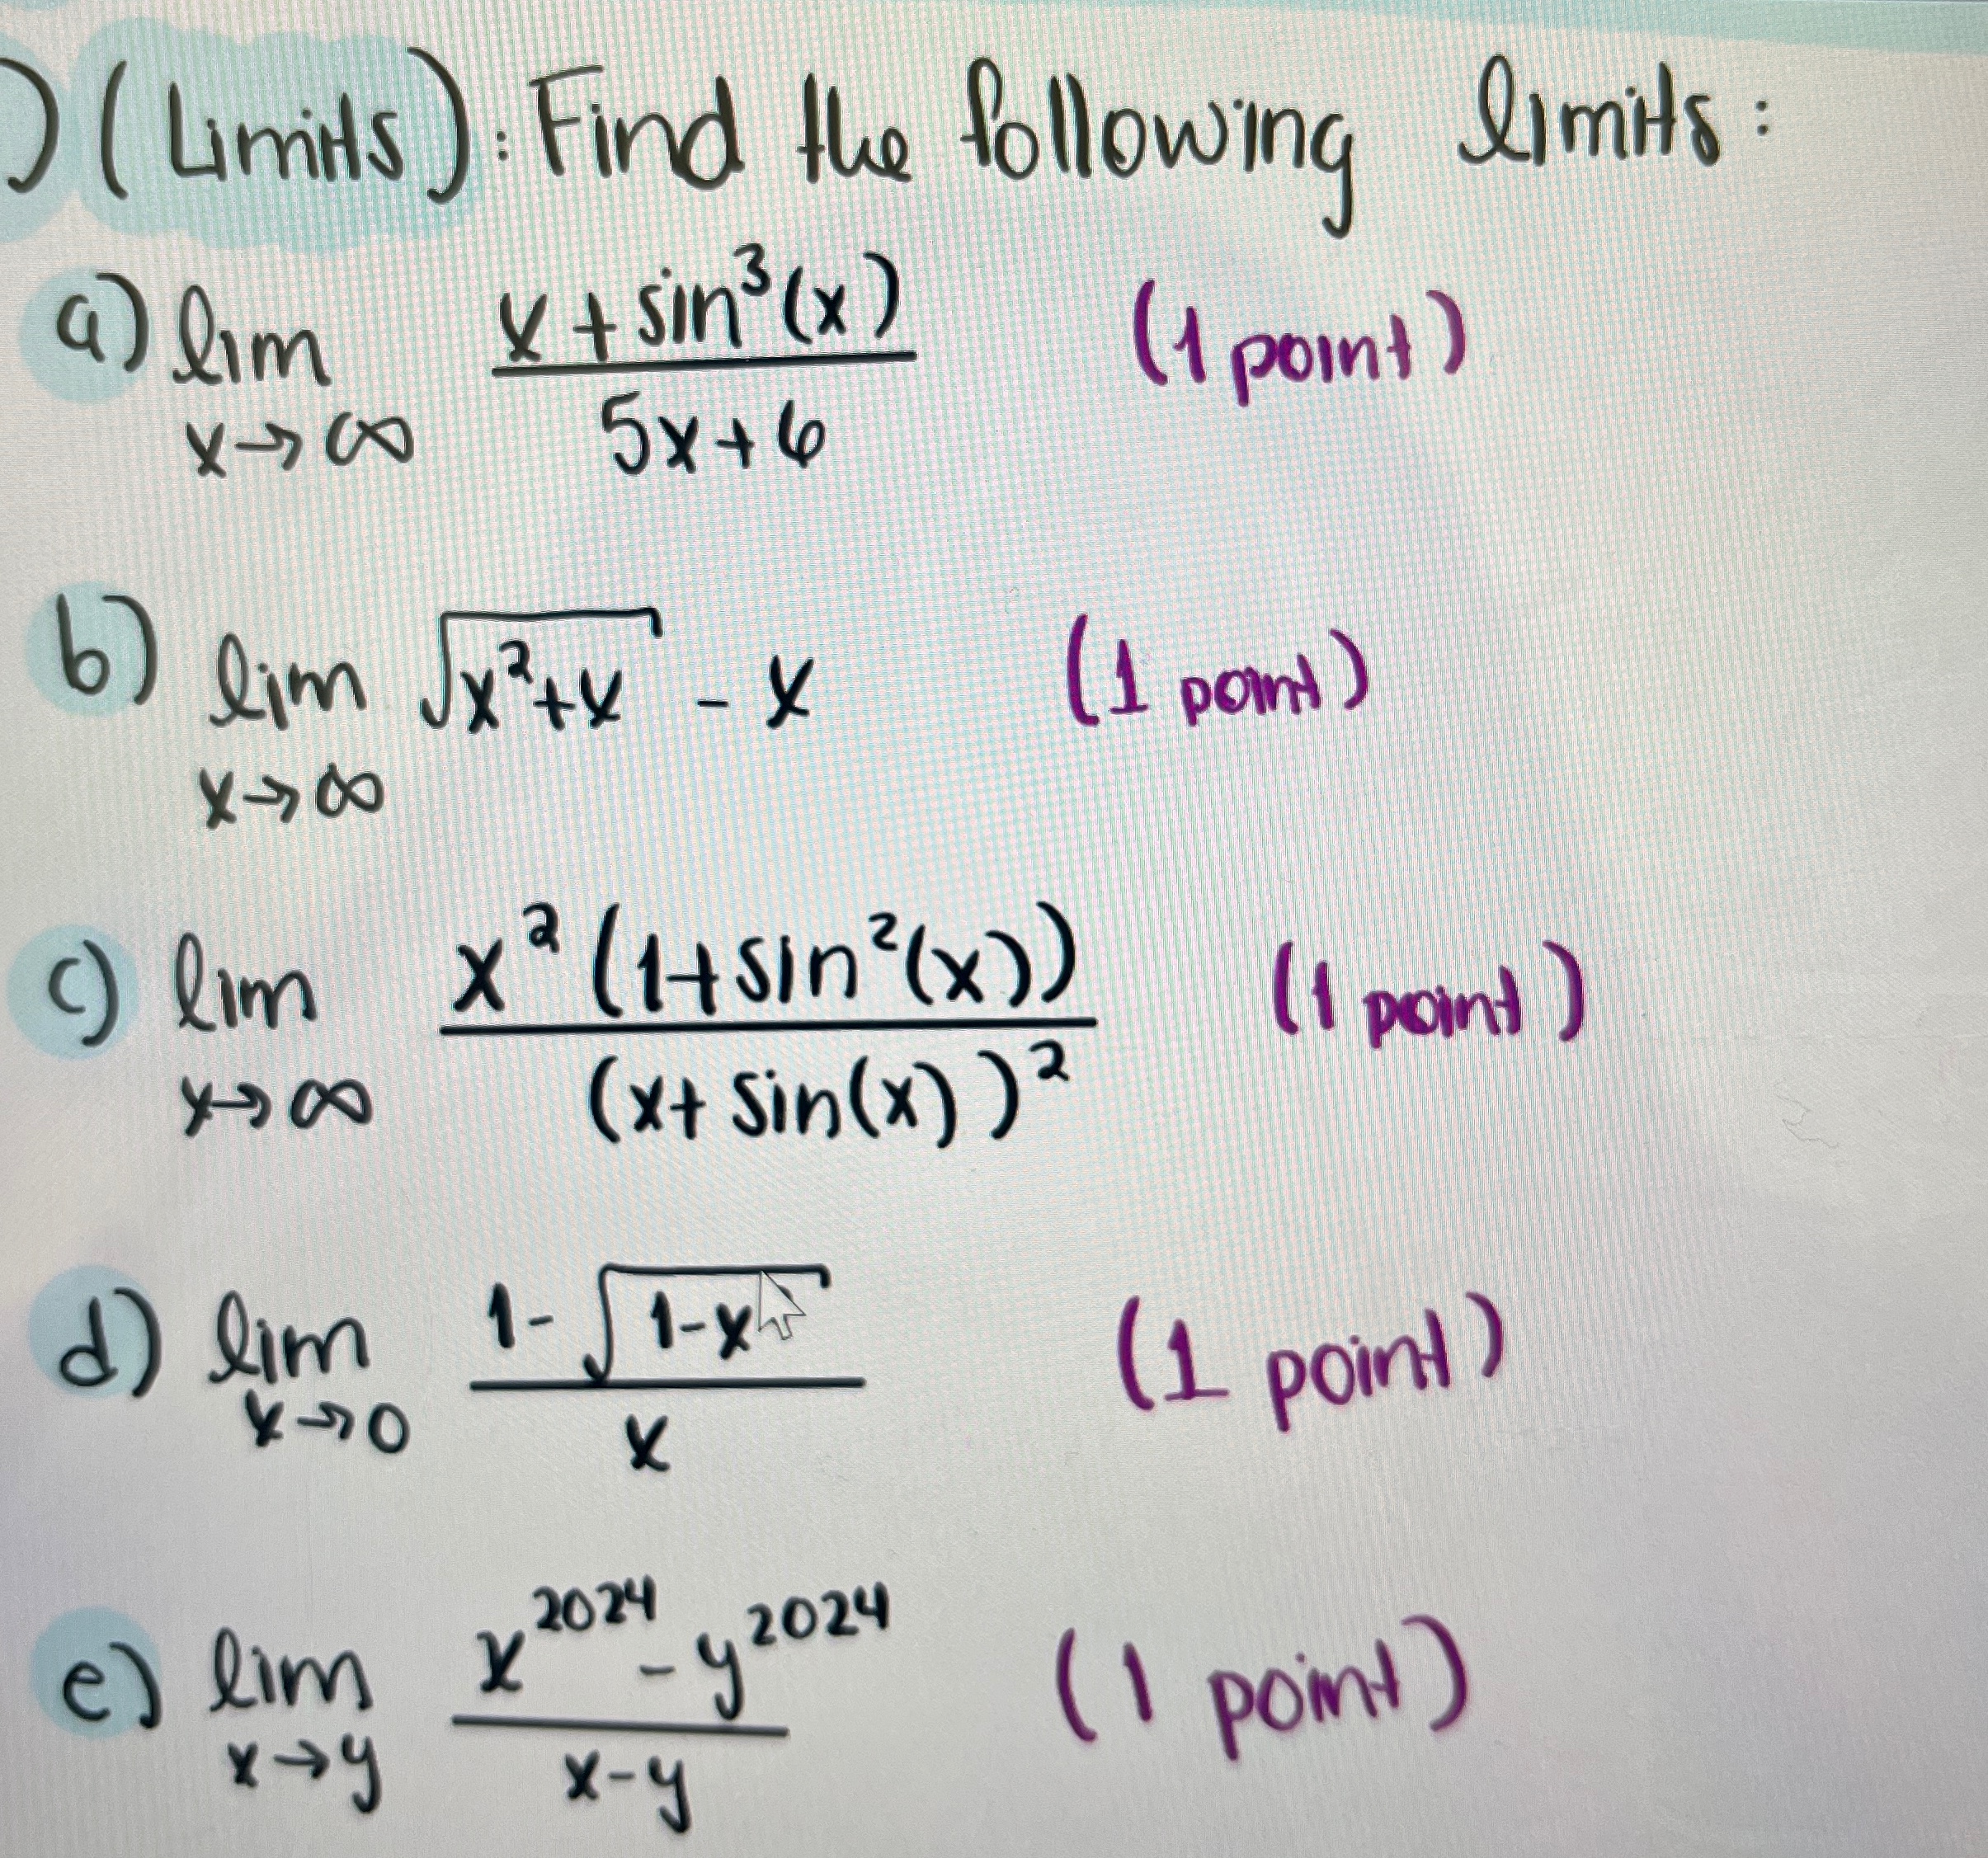 ) (Limits): Find the following limits:
a) lim x→∞ (x + sin³(x)) / (5x+6) (1 point)
b) lim x→∞ √(x²+x) - x (1 point)
c) lim x→∞ (x²(1+sin²(x))) / ((x+sin(x))²) (1 point)
d) lim x→0 (1-√(1-x)) / x (1 point)
e) lim x→y (x²⁰²⁴ - y²⁰²⁴) / (x-y) (1 point)